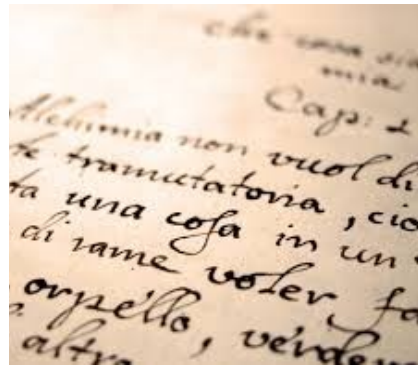 che cosa sia
mia
Cap: 1
Alchimia non vuol di
te tramutatoria, cio
ta una cosa in un
di rame voler fa
orpello, verder
altro